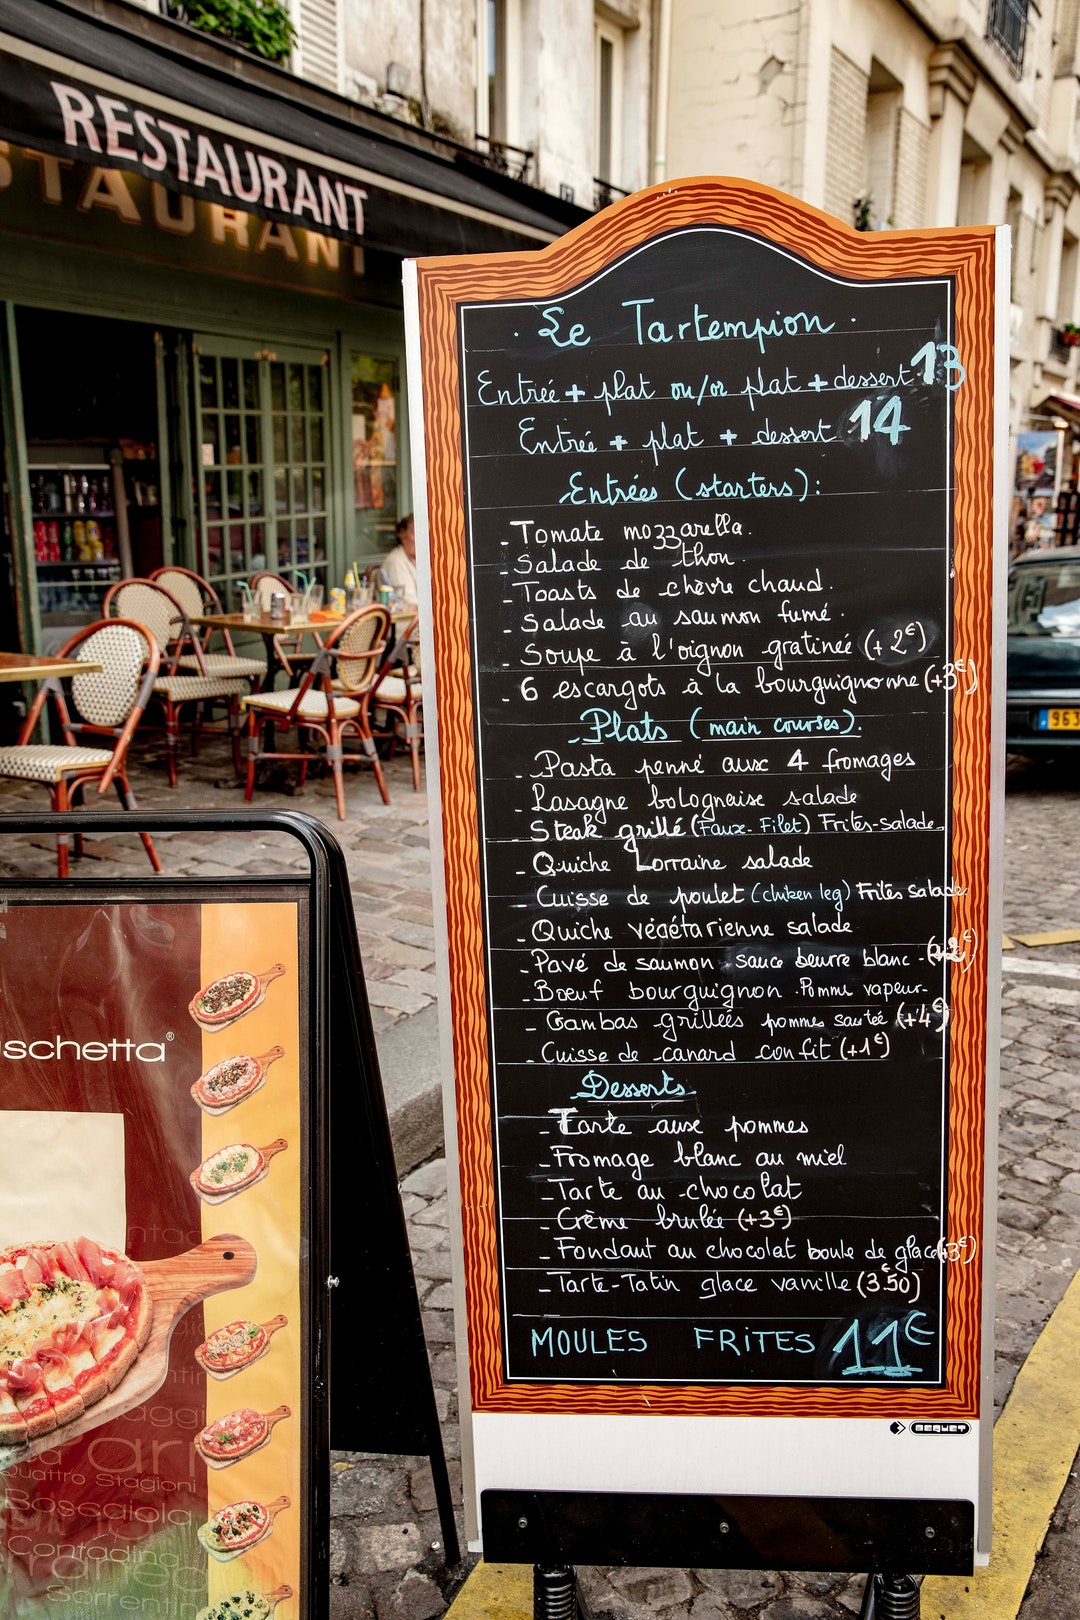 RESTAURANT
STAURANT
· Le Tartempion ·
Entrée + plat ou/or plat + dessert 13
Entrée + plat + dessert 14
Entrées (starters):
- Tomate mozzarella.
- Salade de thon.
- Toasts de chèvre chaud.
- Salade au saumon fumé.
- Soupe à l'oignon gratinée (+ 2€)
- 6 escargots à la bourguignonne (+3€)
- Plats (main courses).
- Pasta penné aux 4 fromages
- Lasagne bolognaise salade
- Steak grillé (Faux-Filet) Frites-salade
- Quiche Lorraine salade
- Cuisse de poulet (chiken leg) Frites salade
- Quiche végétarienne salade
- Pavé de saumon sauce beurre blanc - (+2€)
- Bœuf bourguignon . Pomme vapeur-
- Gambas grillées pommes sautée (+4€)
- Cuisse de canard confit (+1€)
Desserts
- Tarte aux pommes
- Fromage blanc au miel
- Tarte au chocolat
- Crème brulée (+3€)
- Fondant au chocolat boule de glace (+3€)
- Tarte-Tatin glace vanille (3.50€)
MOULES FRITES 11€
BEQUET
963
schetta®
Quattro Stagioni
Boscaiola
Contadina
Sorrentin